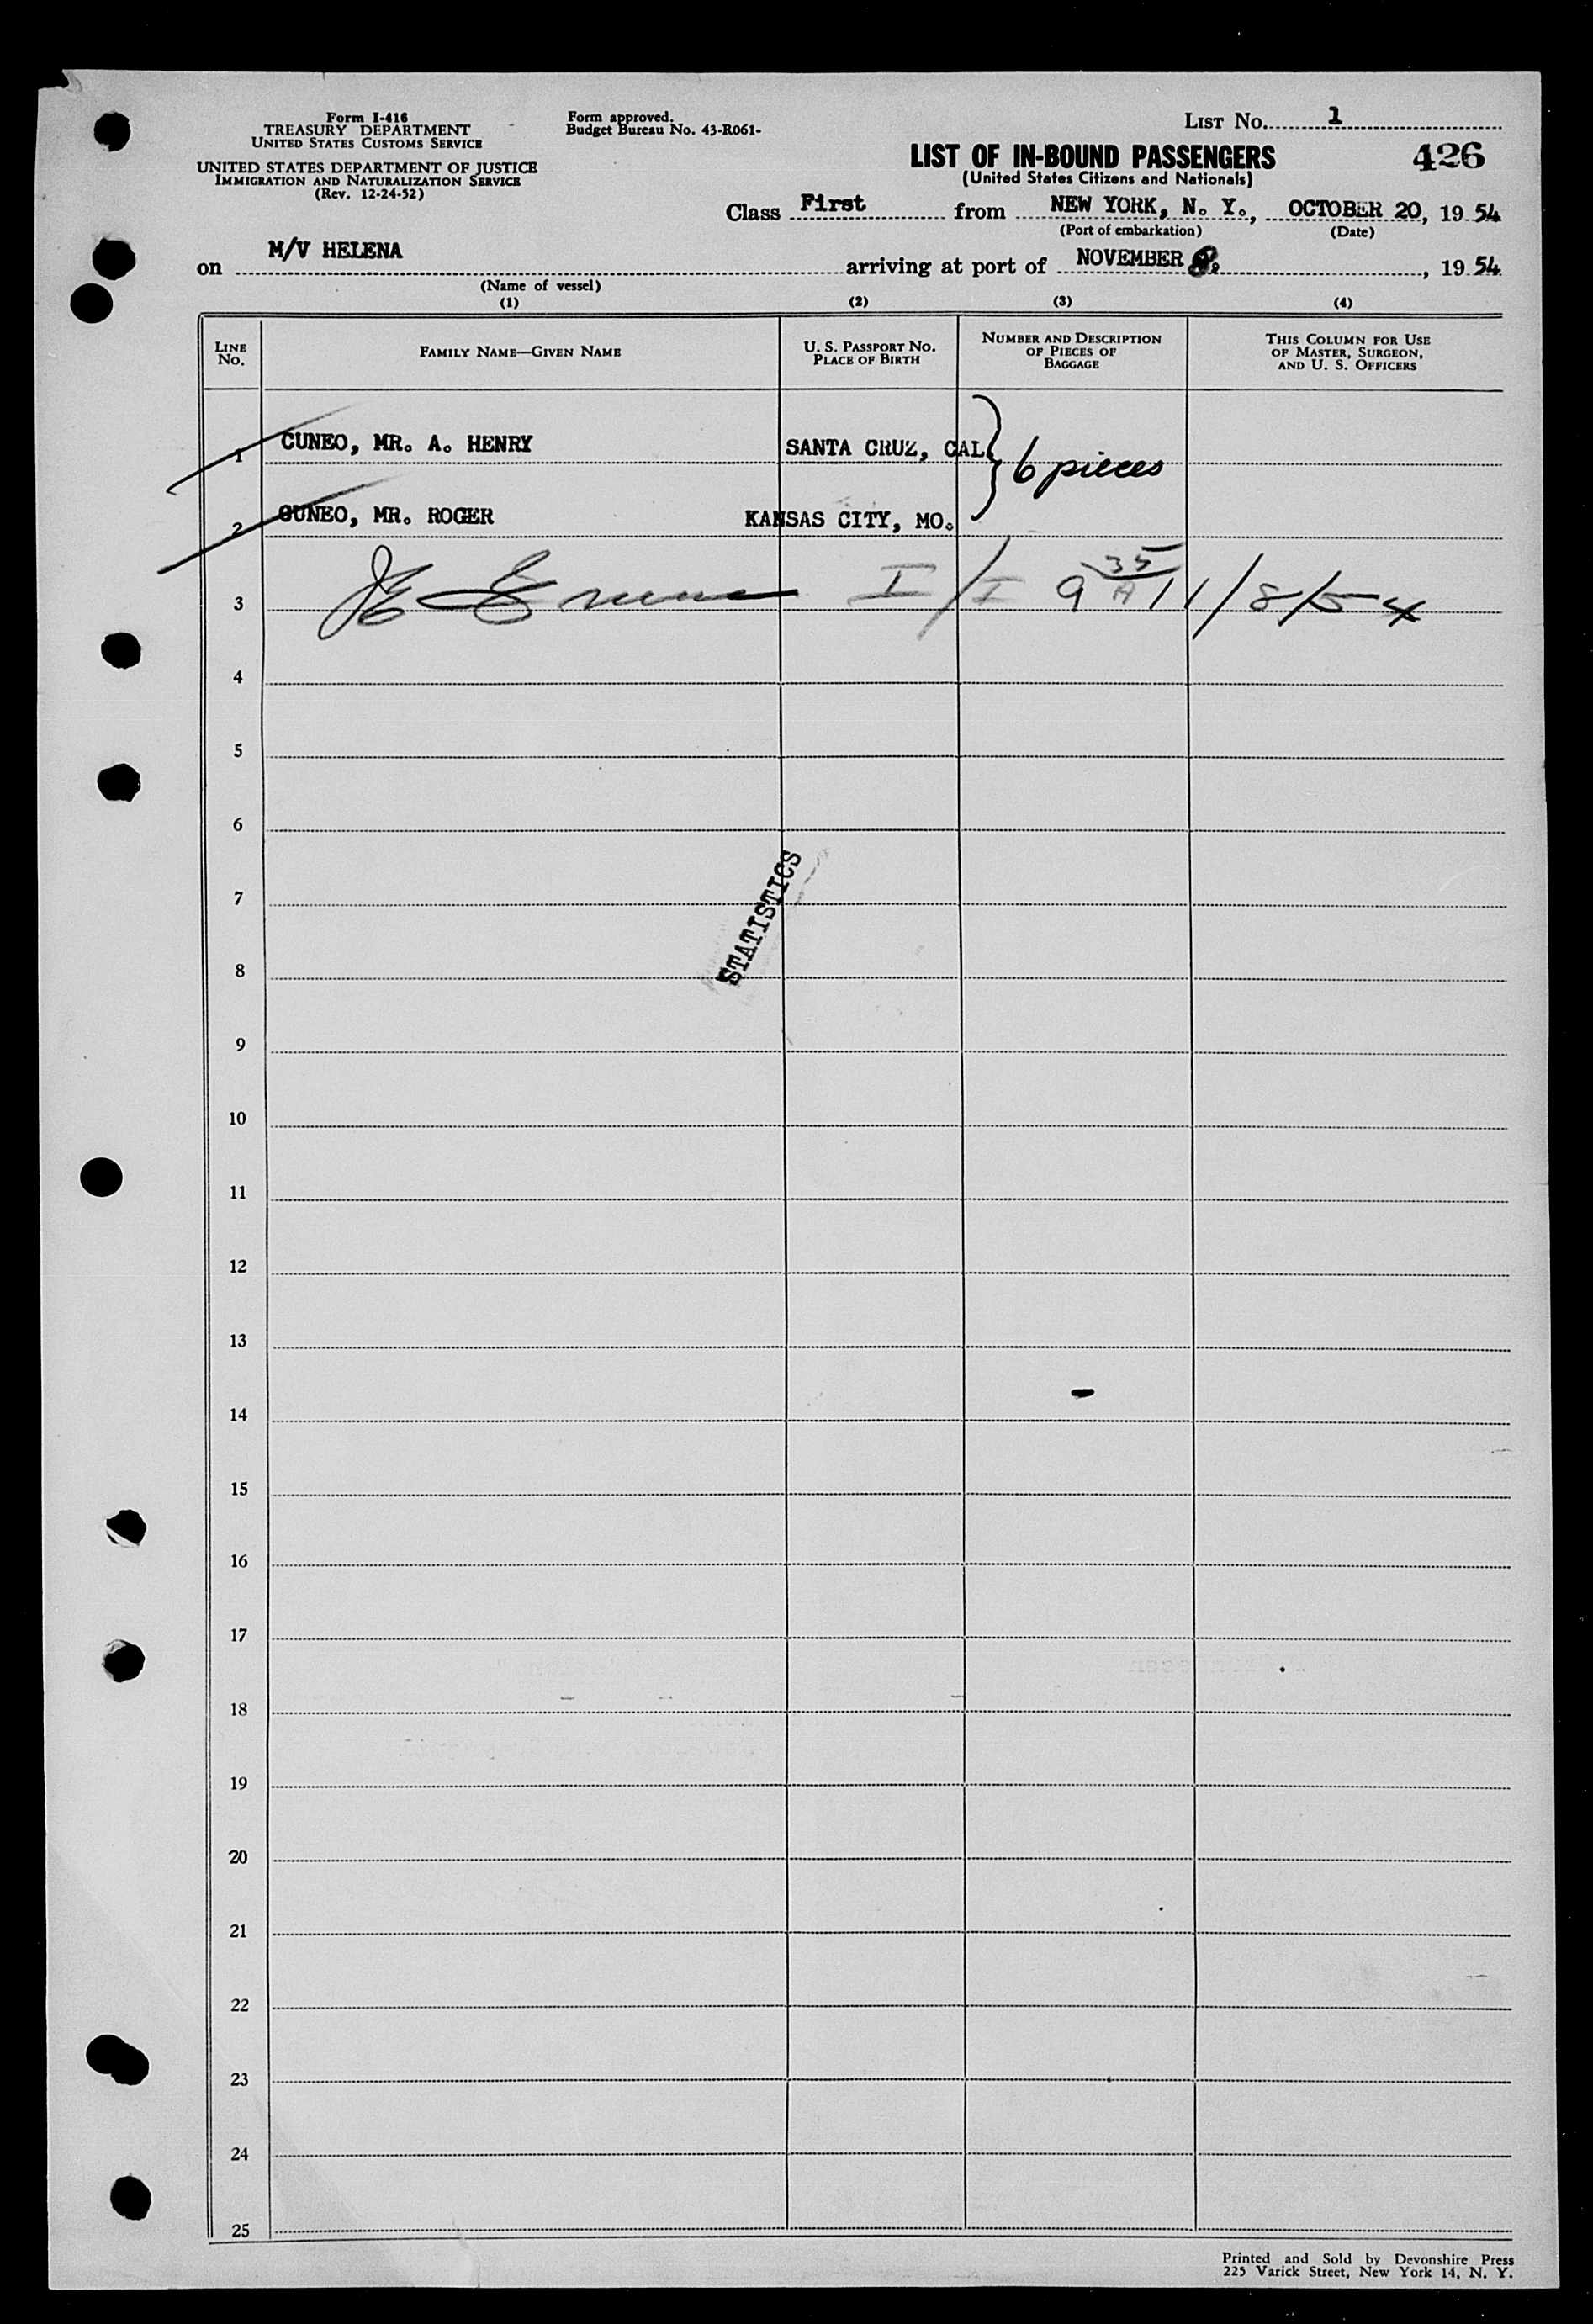 Form I-416
TREASURY DEPARTMENT
UNITED STATES CUSTOMS SERVICE
UNITED STATES DEPARTMENT OF JUSTICE
IMMIGRATION AND NATURALIZATION SERVICE
(Rev. 12-24-52)
Form approved.
Budget Bureau No. 43-R061-
LIST No. 1
LIST OF IN-BOUND PASSENGERS 426
(United States Citizens and Nationals)
Class First from NEW YORK, N. Y., OCTOBER 20, 19 54
(Port of embarkation) (Date)
on M/V HELENA arriving at port of NOVEMBER 8. , 19 54
(Name of vessel)
(1) (2) (3) (4)
LINE No. FAMILY NAME—GIVEN NAME U. S. PASSPORT No. PLACE OF BIRTH NUMBER AND DESCRIPTION OF PIECES OF BAGGAGE THIS COLUMN FOR USE OF MASTER, SURGEON, AND U. S. OFFICERS
1 CUNEO, MR. A. HENRY SANTA CRUZ, CAL 6 pieces
2 CUNEO, MR. ROGER KANSAS CITY, MO.
3 I/I 9 35 A 11/8/54
4
5
6
7
STATISTICS
8
9
10
11
12
13
14
15
16
17
18
19
20
21
22
23
24
25
Printed and Sold by Devonshire Press
225 Varick Street, New York 14, N. Y.